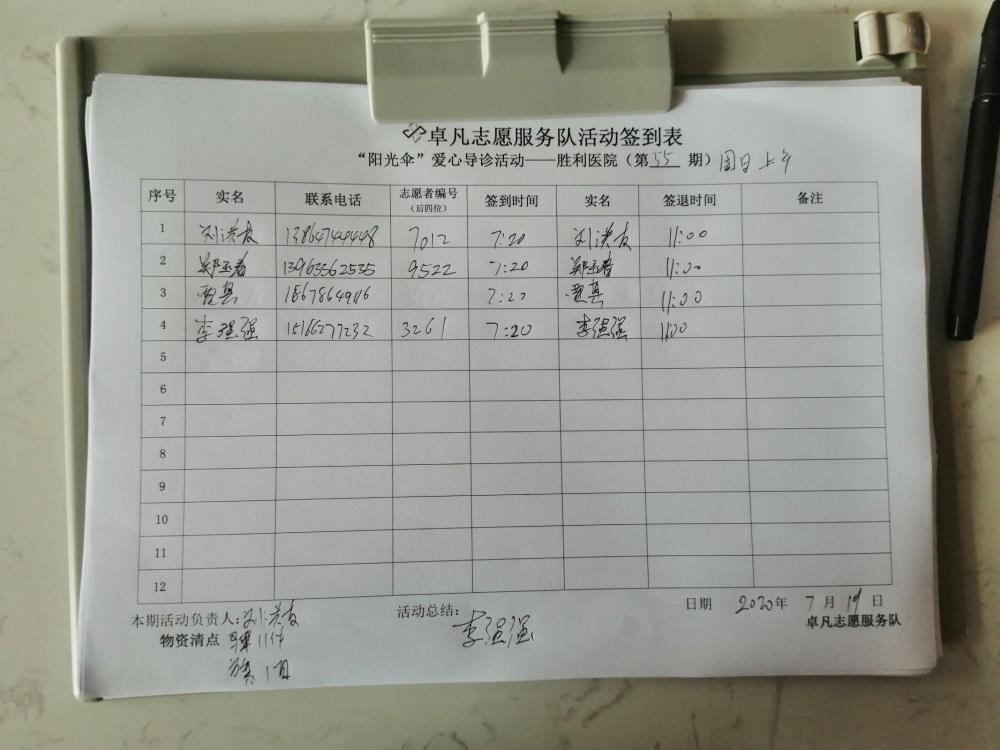 卓凡志愿服务队活动签到表
“阳光伞”爱心导诊活动——胜利医院（第55期）周日上午
序号 实名 联系电话 志愿者编号（后四位） 签到时间 实名 签退时间 备注
1 刘洪友 13864744448 7012 7:20 刘洪友 11:00
2 郑玉春 13963562535 9522 7:20 郑玉春 11:00
3 贾真 7:20 贾真 11:00
4 李强强 15166277232 3261 7:20 李强强 11:00
5
6
7
8
9
10
11
12
本期活动负责人:刘洪友 活动总结: 李强强 日期 2020年7月19日
物资清点 11件 卓凡志愿服务队
1面